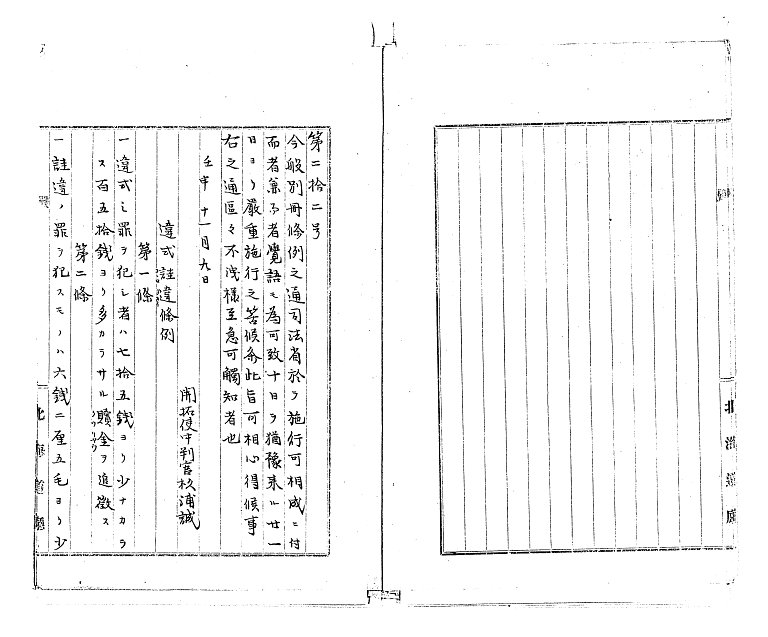 第二拾二号
今般別冊條例之通司法省於テ施行可相成ニ付
而者兼而者覺語モ為可致十日ヲ猶豫来ル廿一
日ヨリ嚴重施行之筈候条此旨可相心得候事
右之通區々不洩様至急可觸知者也
壬申十一月九日
開拓使中判官杉浦誠
違式詿違條例
第一條
一違式之罪ヲ犯シ者ハ七拾五錢ヨリ少ナカラ
ス百五拾錢ヨリ多カラサル贖金ヲ追徴ス
第二條
一詿違ノ罪ヲ犯スモノハ六錢二厘五毛ヨリ少
北海道廳
北海道廳